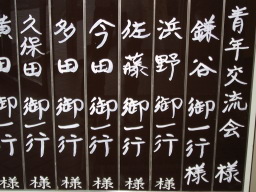 青年交流会 様
鎌谷 御一行 様
浜野 御一行 様
佐藤 御一行 様
今田 御一行 様
多田 御一行 様
久保田 御一行 様
黄田 御一行 様